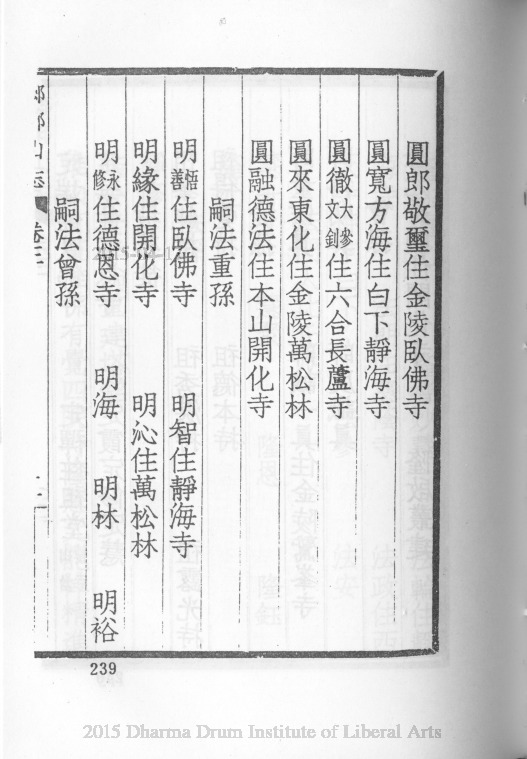 圓郎敬璽住金陵臥佛寺
圓寬方海住白下靜海寺
圓徹文釗大參住六合長蘆寺
圓來東化住金陵萬松林
圓融德法住本山開化寺
嗣法重孫
明善悟住臥佛寺 明智住靜海寺
明緣住開化寺 明沁住萬松林
明修永住德恩寺 明海 明林 明裕
嗣法曾孫
山志 卷三
239
2015 Dharma Drum Institute of Liberal Arts